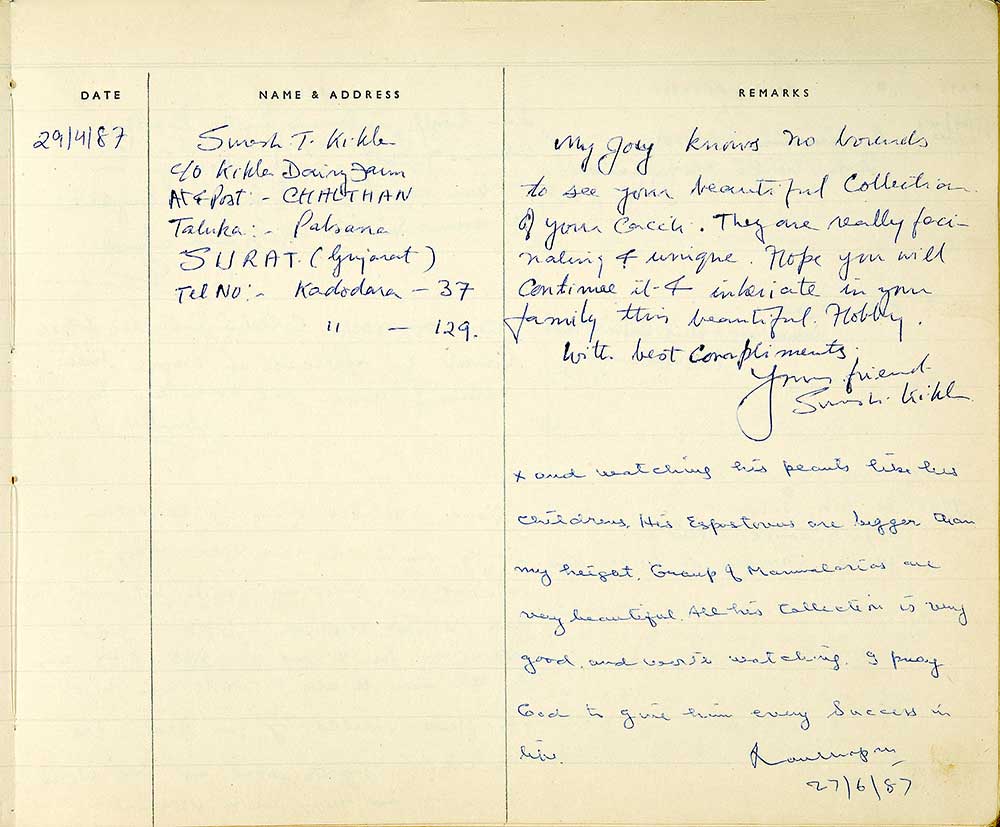 DATE
NAME & ADDRESS
REMARKS
29/4/87
Suresh T. Kikla
c/o Kikla Dairy Farm
At & Post :- CHALTHAN
Taluka :- Palsana
SURAT. (Gujarat)
Tel No :- Kadodara - 37
" - 129.
My Joy knows no bounds
to see your beautiful Collection
of your Cacti. They are really faci-
nating & unique. Hope you will
Continue it & in your
family this beautiful Hobby.
With best Compliments.
Yours friend
Suresh Kikla
x and watching his plants like his
childrens. His Espostovas are bigger than
my height. Group of Mammalarias are
very beautiful. All his Collection is very
good, and worth watching. I pray
God to give him every Success in
life.
27/6/87